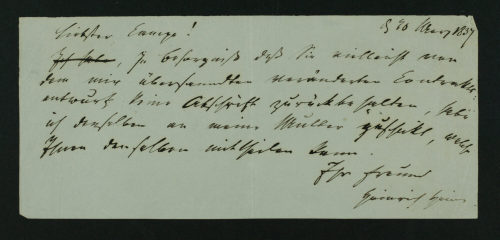 d 20 März 1837
Liebster Campe!
Ich habe, In Besorgniß daß Sie vielleicht von
dem mir übersendten veränderten Contrakt
entwurf keine Abschrift zurückbehalten, habe
ich denselben an meine Mutter geschickt, welche
Ihnen denselben mittheilen kann.
Ihr Freund
Heinrich Heine